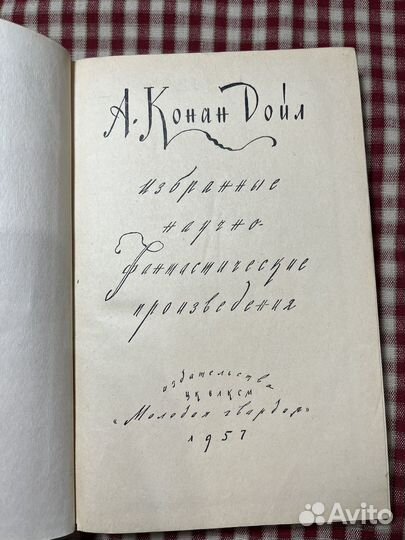 А. Конан Дойл
избранные
научно-
фантастические
произведения
издательство
ЦК ВЛКСМ
«Молодая гвардия»
1957
Avito